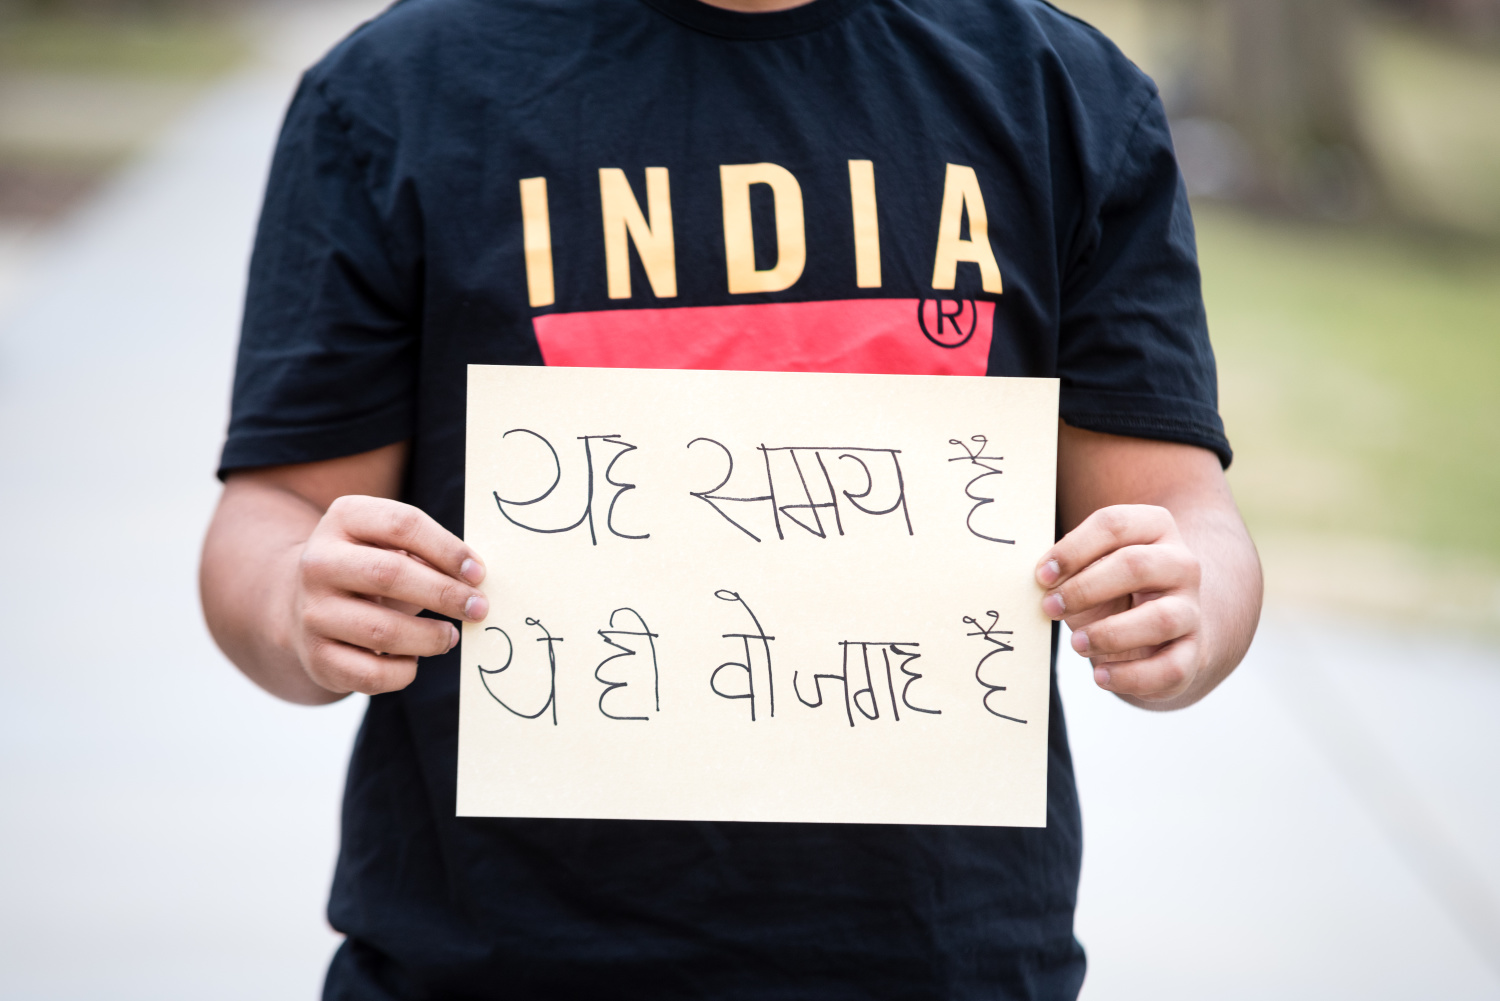 INDIA
®
यह समय है
ये ही वो जगह है